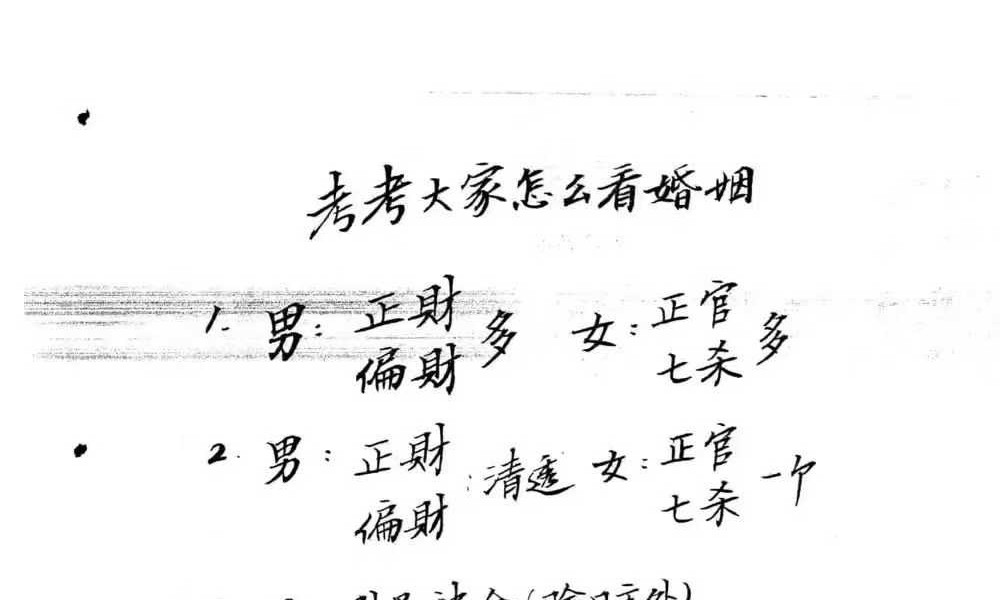 考考大家怎么看婚姻
1. 男: 正財 偏財 多 女: 正官 七杀 多
2. 男: 正財 偏財 : 清透 女: 正官 七杀 一个